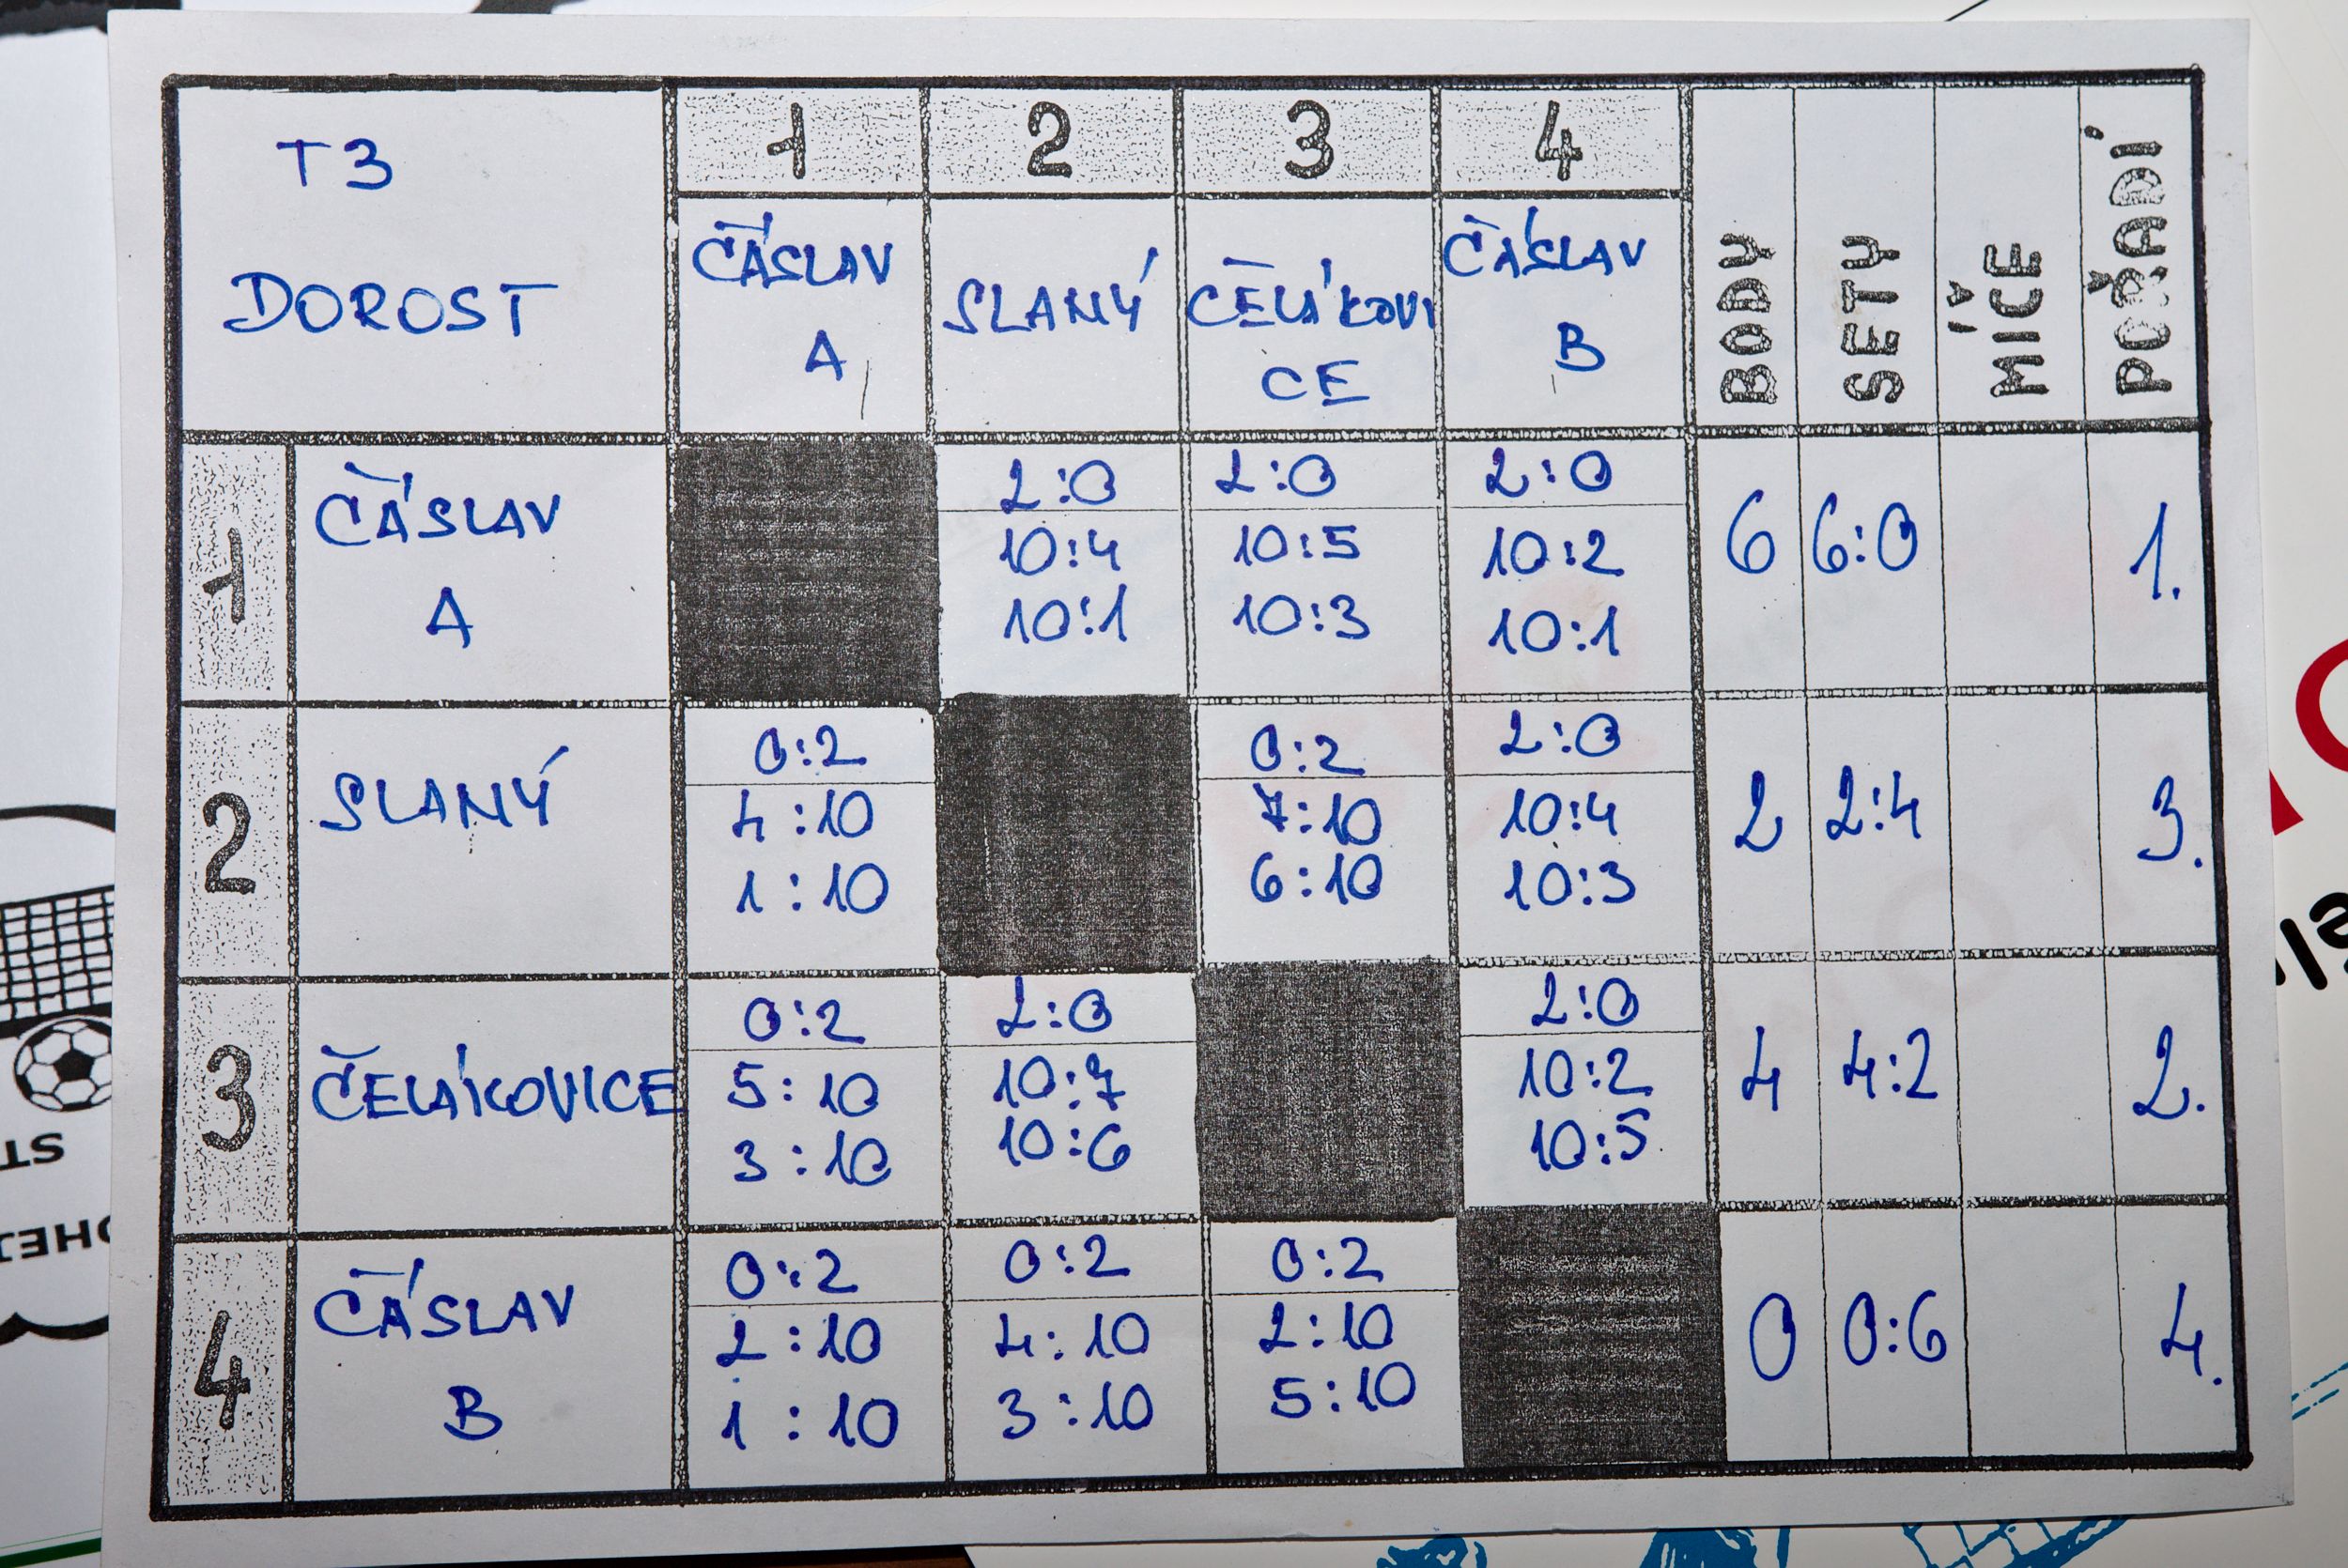 T3
DOROST
1 2 3 4
ČÁSLAV A
SLANÝ
ČELÁKOVI
CE
ČÁSLAV B
BODY
SETY
MÍČE
POŘADÍ
1
ČÁSLAV
A
2:0 2:0 2:0
10:4 10:5 10:2
10:1 10:3 10:1
6 6:0 1.
2
SLANÝ
0:2 0:2 2:0
4:10 7:10 10:4
1:10 6:10 10:3
2 2:4 3.
3
ČELÁKOVICE
0:2 2:0 2:0
5:10 10:7 10:2
3:10 10:6 10:5
4 4:2 2.
4
ČÁSLAV
B
0:2 0:2 0:2
2:10 4:10 2:10
1:10 3:10 5:10
0 0:6 4.